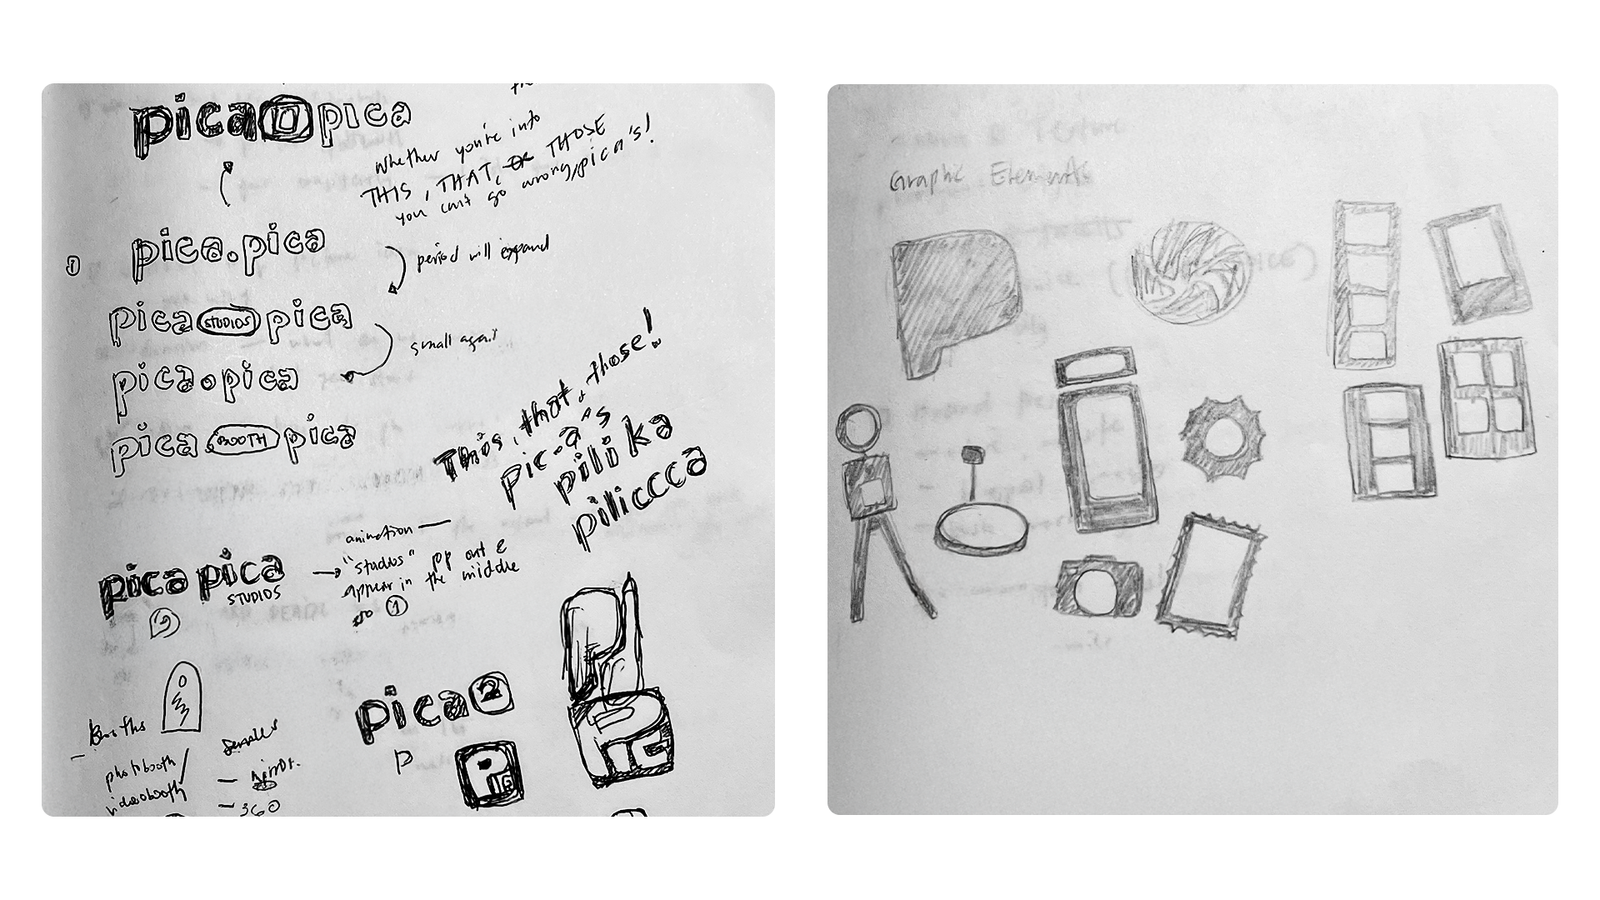 pica pica
whether you're into
THIS, THAT, OR THOSE
you can't go wrong, pica's!
1
pica.pica
period will expand
pica STUDIOS pica
small again
pica.pica
pica BOOTH pica
This, that, those!
pic-a's
pilika
piliccca
animation —
pica pica
STUDIOS
2
"studios" pop out &
appear in the middle
1
Booths
photobooth
videobooth
- mirror
- 360
pica2
P
PIC
PIC
Graphic Elements